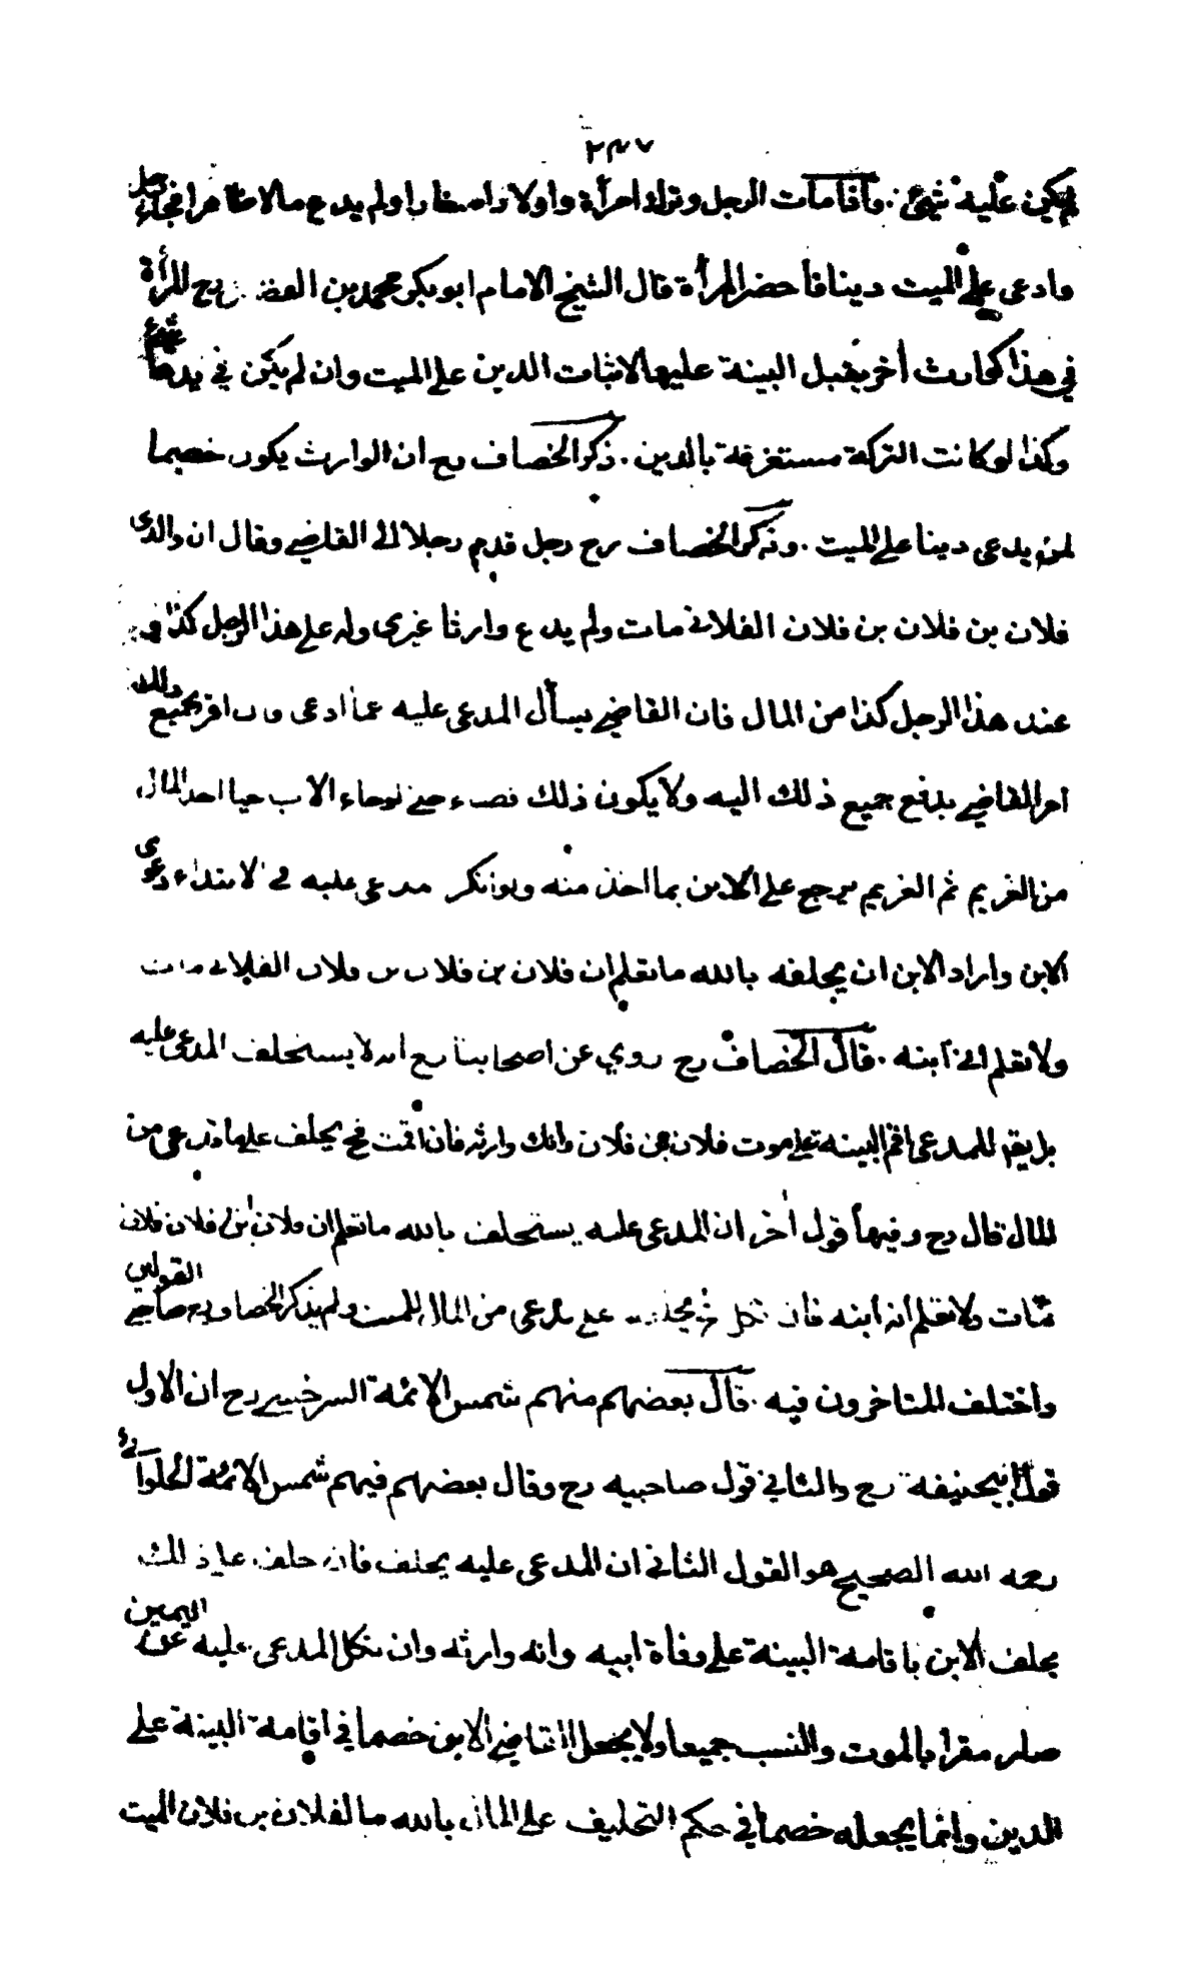 ٢٤٧
لم يكن عليه شيئ . واذا مات الرجل وترك امرأة واولادا صغارا ولم يدع مالا ظاهرا فجاء رجل
وادعى على الميت دينا فأحضر المرأة قال الشيخ الامام ابو بكر محمد بن الفضل رح المرأة
في هذا كوارث أخر يقبل البينة عليها لاثبات الدين على الميت وان لم يكن في يدها شيئ
وكذا لو كانت التركة مستغرقة بالدين . ذكر الخصاف رح ان الوارث يكون خصما
لمن يدعى دينا على الميت . وذكر الخصاف رح رجل قدم رجلا الى القاضي وقال ان والدى
فلان بن فلان بن فلان الفلانى مات ولم يدع وارثا غيرى وله على هذا الرجل كذا
عند هذا الرجل كذا من المال فان القاضي يسأل المدعى عليه عما ادعى فان اقر بجميع ذلك
امر القاضي بدفع جميع ذلك اليه ولا يكون ذلك قضاء حتى لو جاء الاب حيا اخذ المال
من الغريم ثم الغريم يرجع على الابن بما اخذ منه ولو انكر مدعى عليه فى الابتداء دعوى
الابن واراد الابن ان يحلفه بالله ما تعلم ان فلان بن فلان بن فلان الفلانى مات
ولا تعلم انى ابنه . قال الخصاف رح روي عن اصحابنا رح انه لا يستحلف المدعى عليه
بل يقم للمدعى اقم البينة على موت فلان بن فلان وانك وارثه فان اقمت فح يحلف على ما تدعى من
المال قال رح وفيها قول أخر ان المدعى عليه يستحلف بالله ما تعلم ان فلان بن فلان فلان
مات ولا تعلم انه ابنه فان نكل على ما يدعى من المال للميت ولم يذكر الخصاف رح صاحبى القولين
واختلف المتاخرون فيه . قال بعضهم منهم شمس الائمة السرخسي رح ان الاول
قول ابيحنيفة رح والثاني قول صاحبيه رح وقال بعضهم فيهم شمس الائمة الحلوانى
رحمه الله الصحيح هو القول الثانى ان المدعى عليه يحلف فان حلف على ذلك
يحلف الابن باقامة البينة على وفأة ابيه وانه وارثه وان نكل المدعى عليه عن اليمين
صار مقرا بالموت والنسب جميعا ولا يجعل القاضي الابن خصما في اقامة البينة على
الدين وانما يجعله خصما في حكم التحليف على المال بالله ما لفلان بن فلان الميت